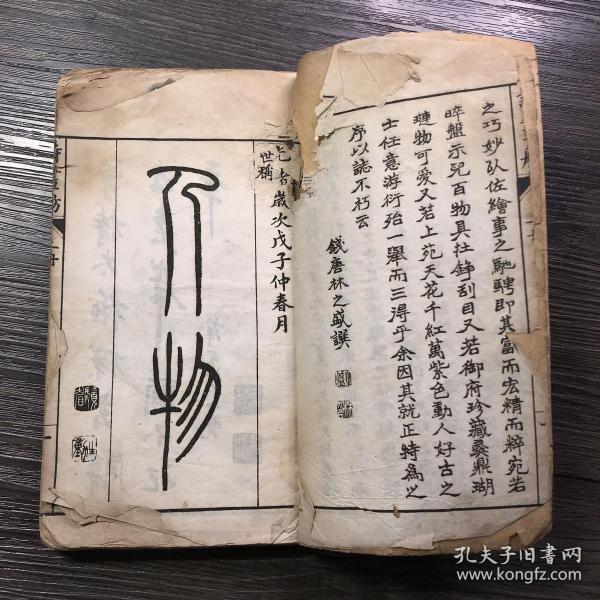 之巧妙以佐繪事之馳騁即其富而宏精而粹宛若
晬盤示兒百物具杜錚刮目又若御府珍藏彝鼎瑚
璉物可愛又若上苑天花千紅萬紫色動人好古之
士任意游衍殆一舉而三得乎余因其就正特為之
序以誌不朽云
錢唐林之盛譔
老者歲次戊子仲春月
世稱
人物
孔夫子旧书网
www.kongfz.com